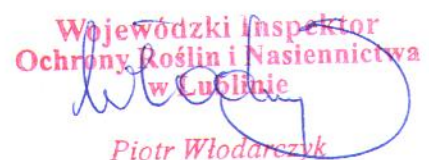 Wojewódzki Inspektor
Ochrony Roślin i Nasiennictwa
w Lublinie
Piotr Włodarczyk